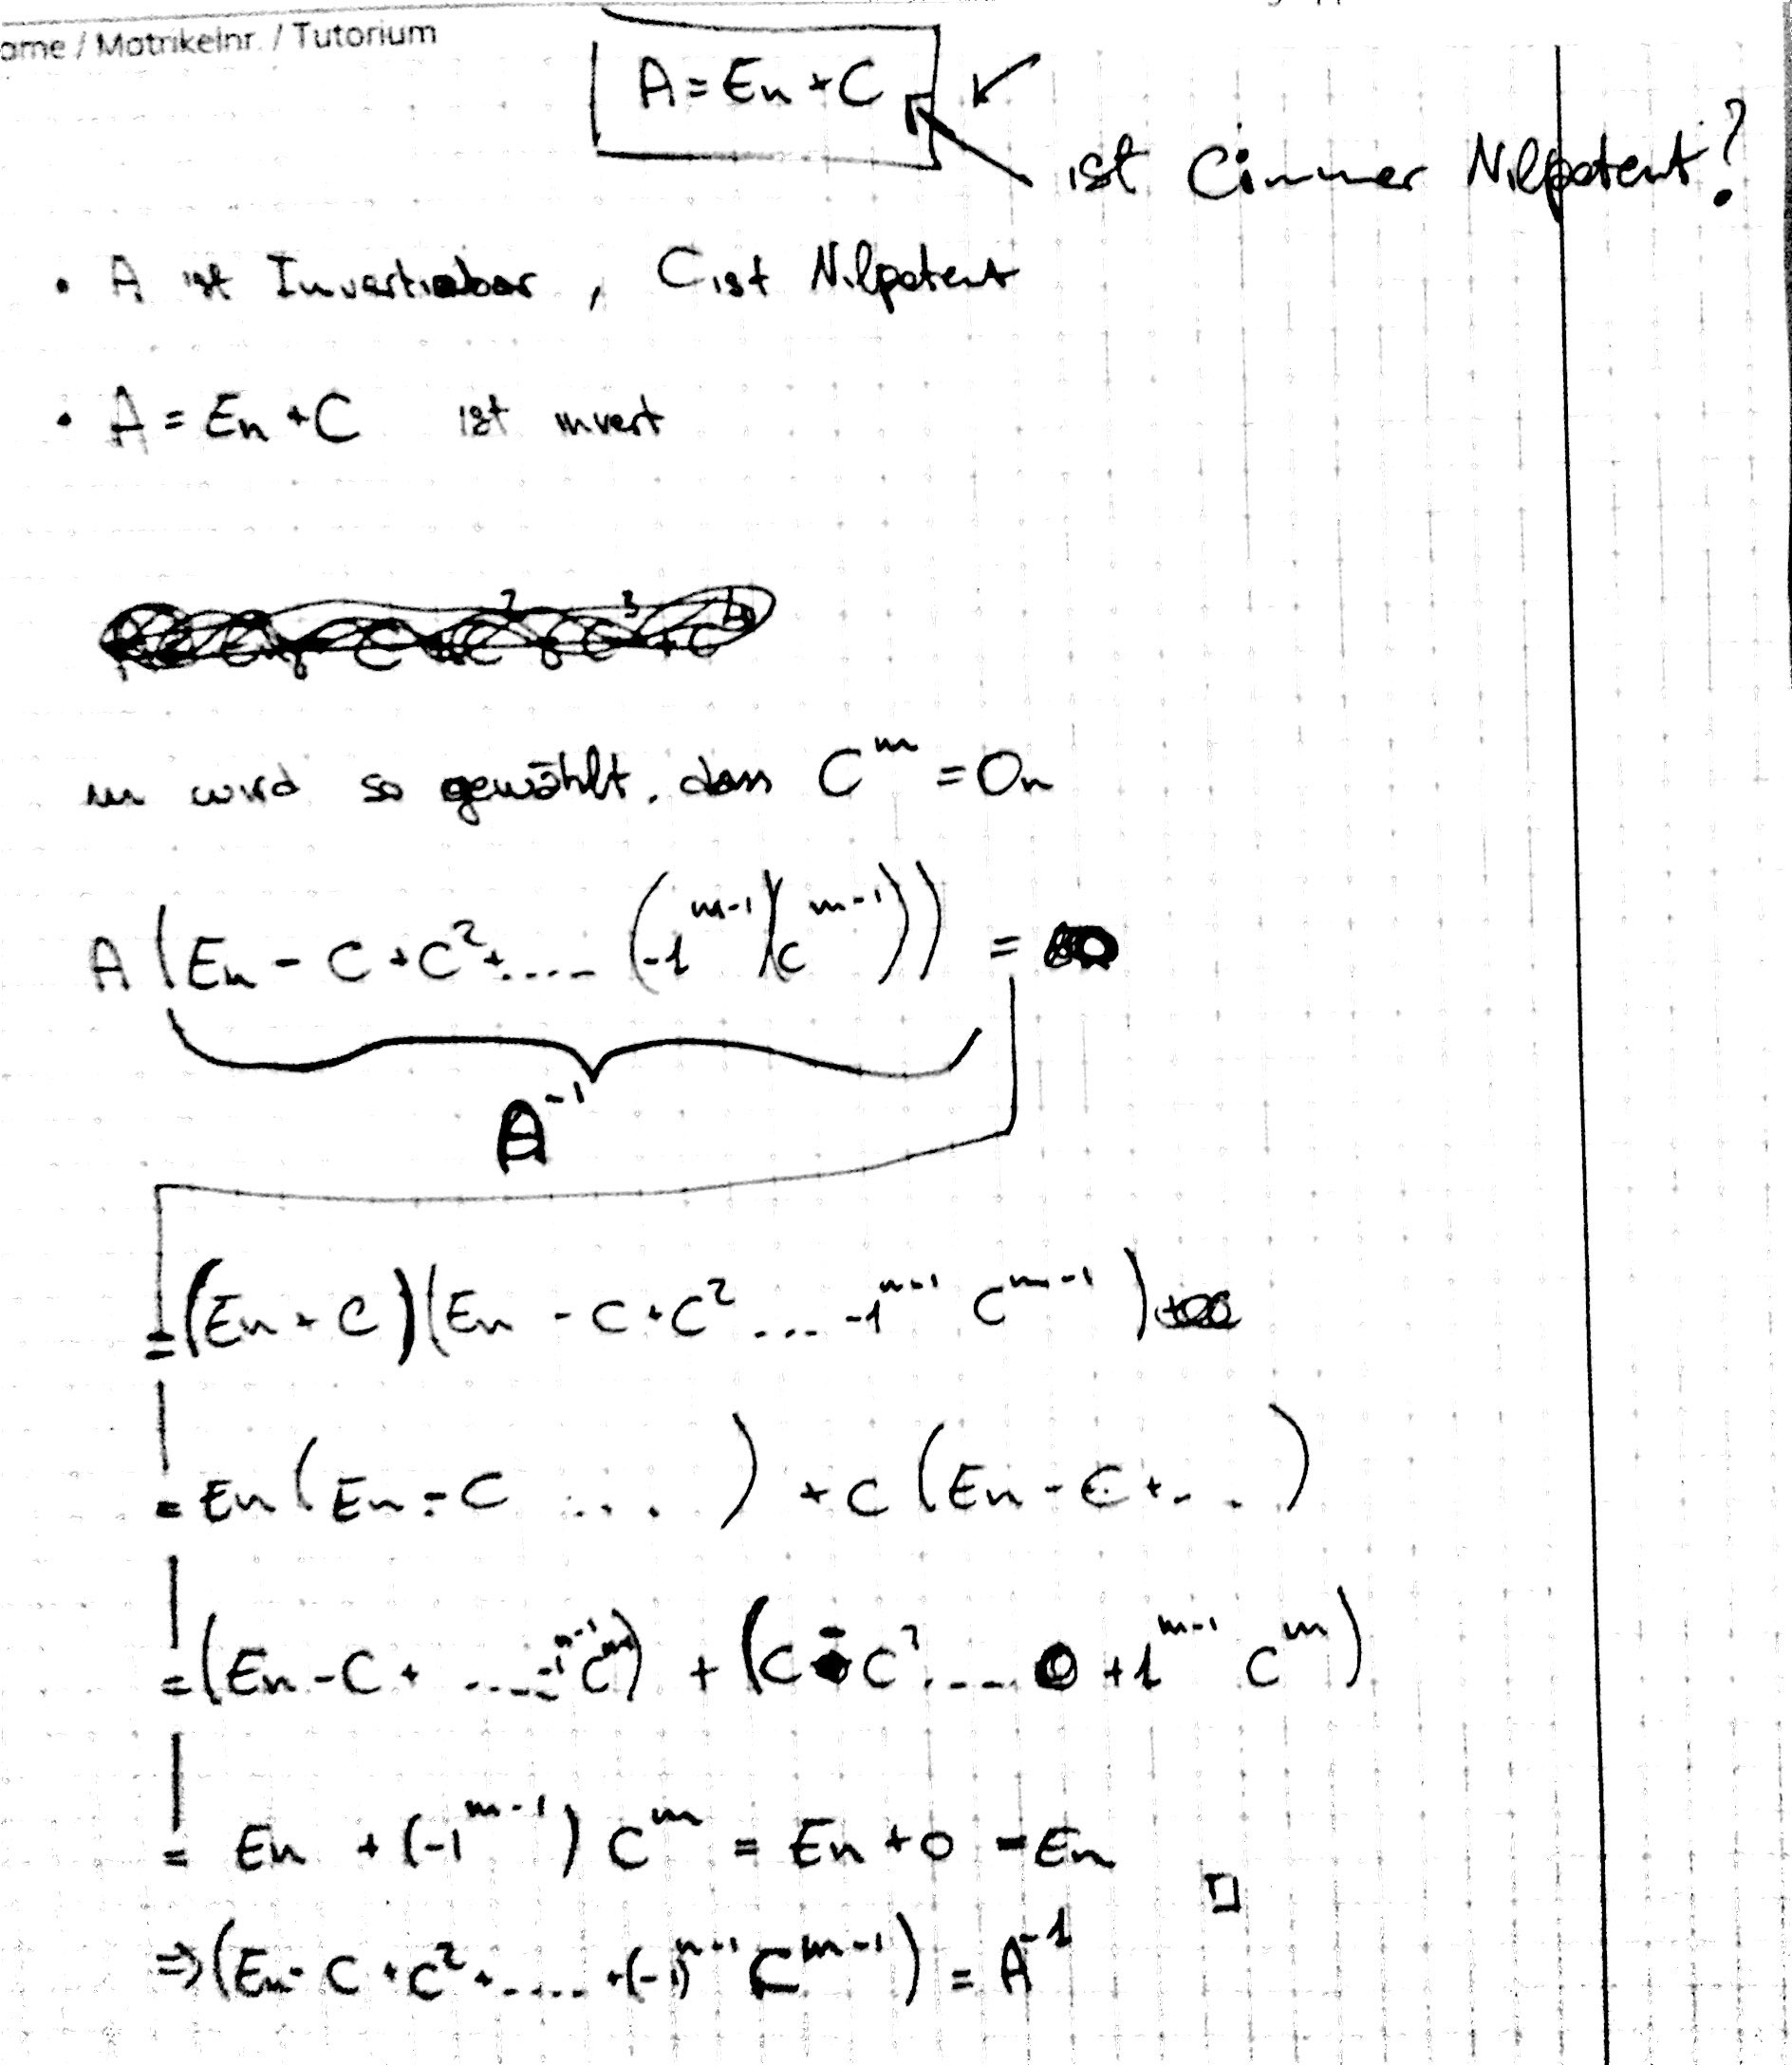 ame / Matrikelnr. / Tutorium
A = En + C
ist C immer Nilpotent?
• A ist Invertiebar, C ist Nilpotent
• A = En + C ist invert
m wird so gewählt, dass C^m = On
A (En - C + C^2 + .... (-1^m-1)(C^m-1)) =
A^-1
= (En + C)(En - C + C^2 .... -1^m-1 C^m-1)
= En (En - C ....) + C (En - C + ...)
= (En - C + ..... -1^m-1 C^m-1) + (C - C^2 .... +1^m-1 C^m)
= En + (-1^m-1) C^m = En + 0 = En □
⇒ (En - C + C^2 + .... + (-1)^m-1 C^m-1) = A^-1